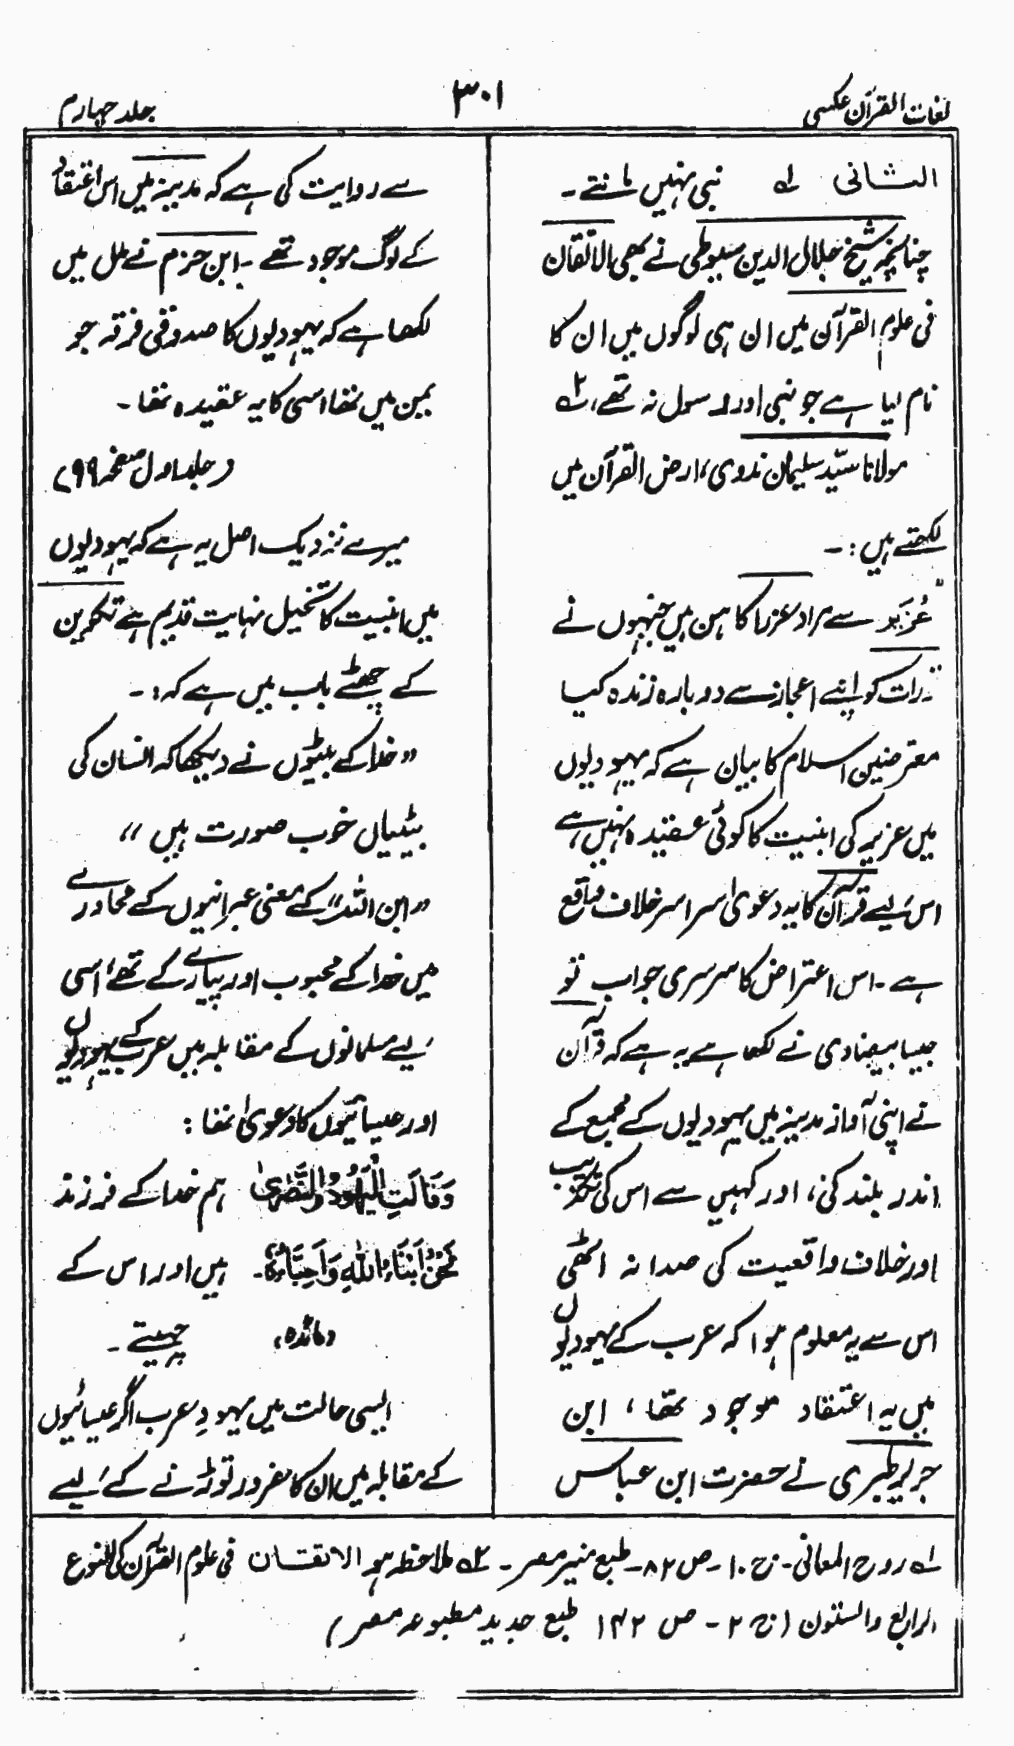 لغات القرآن عکسی
۳۰۱
جلد چہارم
الثانی لہ نبی نہیں مانتے ۔
چنانچہ شیخ جلال الدین سیوطی نے بھی الاتقان
فی علوم القرآن میں ان ہی لوگوں میں ان کا
نام لیا ہے جو نبی اور رسول نہ تھے، ۲ہ
مولانا سیّد سلیمان ندوی، ارض القرآن میں
لکھتے ہیں : ۔
"عُزَیر سے مراد عزرا کاہن ہیں جنہوں نے
تورات کو اپنے اعجاز سے دوبارہ زندہ کیا
معترضین اسلام کا بیان ہے کہ یہودیوں
میں عزیر کی ابنیت کا کوئی عقیدہ نہیں ہے،
اس لیے قرآن کا یہ دعویٰ سراسر خلاف واقع
ہے ۔ اس اعتراض کا سرسری جواب تو
جیسا بیضاوی نے لکھا ہے یہ ہے کہ قرآن
نے اپنی آواز مدینہ میں یہودیوں کے مجمع کے
اندر بلند کی، اور کہیں سے اس کی تکذیب
اور خلاف واقعیت کی صدا نہ اٹھی
اس سے یہ معلوم ہوا کہ عرب کے یہودیوں
میں یہ اعتقاد موجود تھا، ابن
جریر طبری نے حضرت ابن عباس
سے روایت کی ہے کہ مدینہ میں اس اعتقاد
کے لوگ موجود تھے ۔ ابن حزم نے ملل میں
لکھا ہے کہ یہودیوں کا صدوقی فرقہ جو
یمن میں تھا اسی کا یہ عقیدہ تھا ۔
(جلد اول صفحہ ۹۹)
میرے نزدیک اصل یہ ہے کہ یہودیوں
میں ابنیت کا تخیل نہایت قدیم ہے تکوین
کے چھٹے باب میں ہے کہ: ۔
"خدا کے بیٹوں نے دیکھا کہ انسان کی
بیٹیاں خوب صورت ہیں"
"ابن اللہ" کے معنی عبرانیوں کے محاورے
میں خدا کے محبوب اور پیارے کے تھے، اسی
لیے مسلمانوں کے مقابلہ میں عرب کے یہودیوں
اور عیسائیوں کا دعویٰ تھا :
وَقَالَتِ الْیَهُودُ وَالنَّصٰرٰی ہم خدا کے فرزند
نَحْنُ اَبْنَاءُ اللّٰهِ وَاَحِبَّاءُهٗ ۔ ہیں اور اس کے
(مائدہ) چہیتے ۔
ایسی حالت میں یہود عرب اگر عیسائیوں
کے مقابلہ میں ان کا غرور توڑنے کے لیے
لہ روح المعانی ۔ ج ۱۰ ۔ ص ۸۲ ۔ طبع منیر مصر ۔ ۲ہ ملاحظہ ہو الاتقان فی علوم القرآن کی النوع
الرابع والستون (ج ۲ ۔ ص ۱۴۲ طبع جدید مطبوعہ مصر)